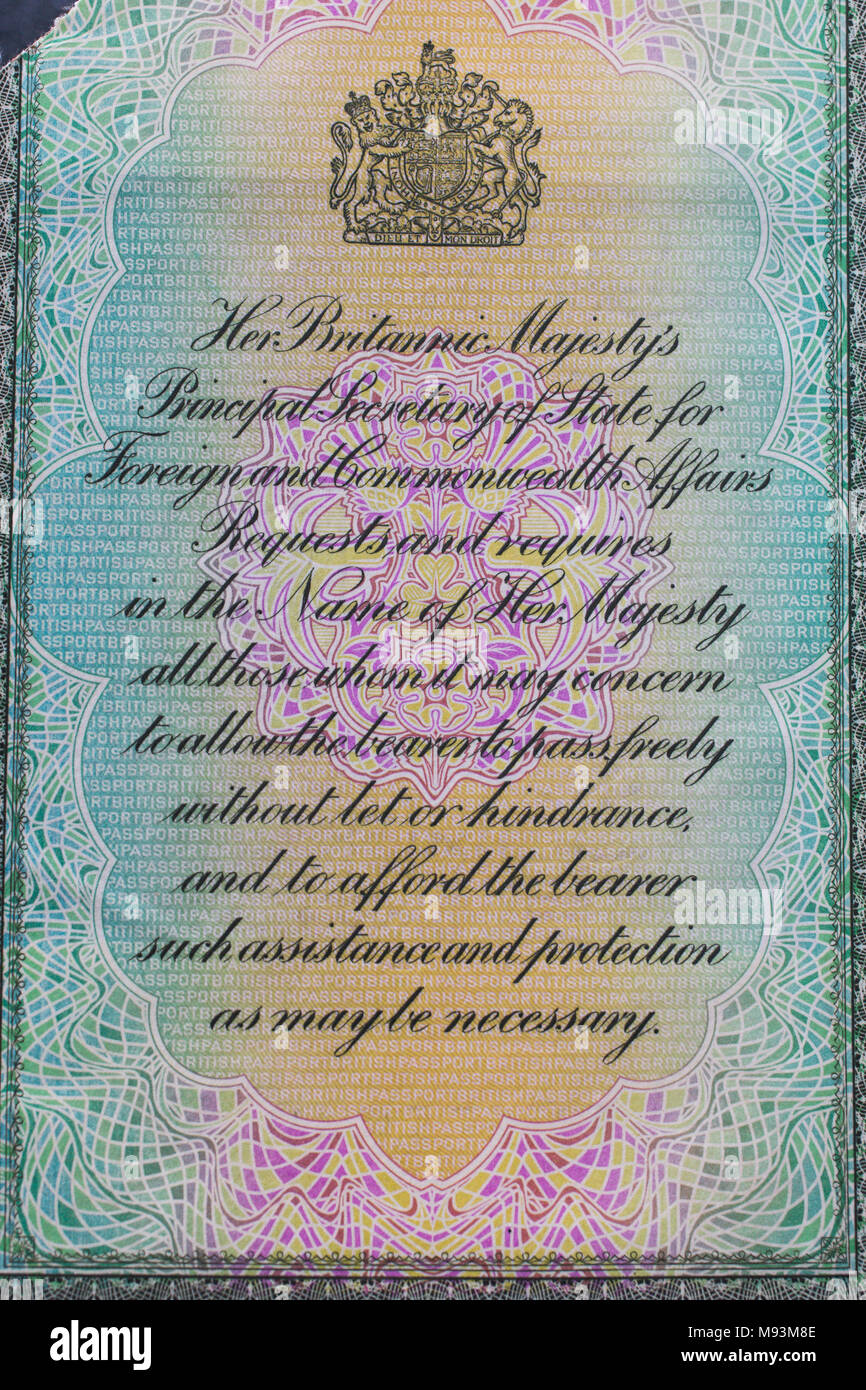 DIEU ET MON DROIT
Her Britannic Majesty's
Principal Secretary of State for
Foreign and Commonwealth Affairs
Requests and requires
in the Name of Her Majesty
all those whom it may concern
to allow the bearer to pass freely
without let or hindrance,
and to afford the bearer
such assistance and protection
as may be necessary.
alamy
Image ID: M93M8E
www.alamy.com